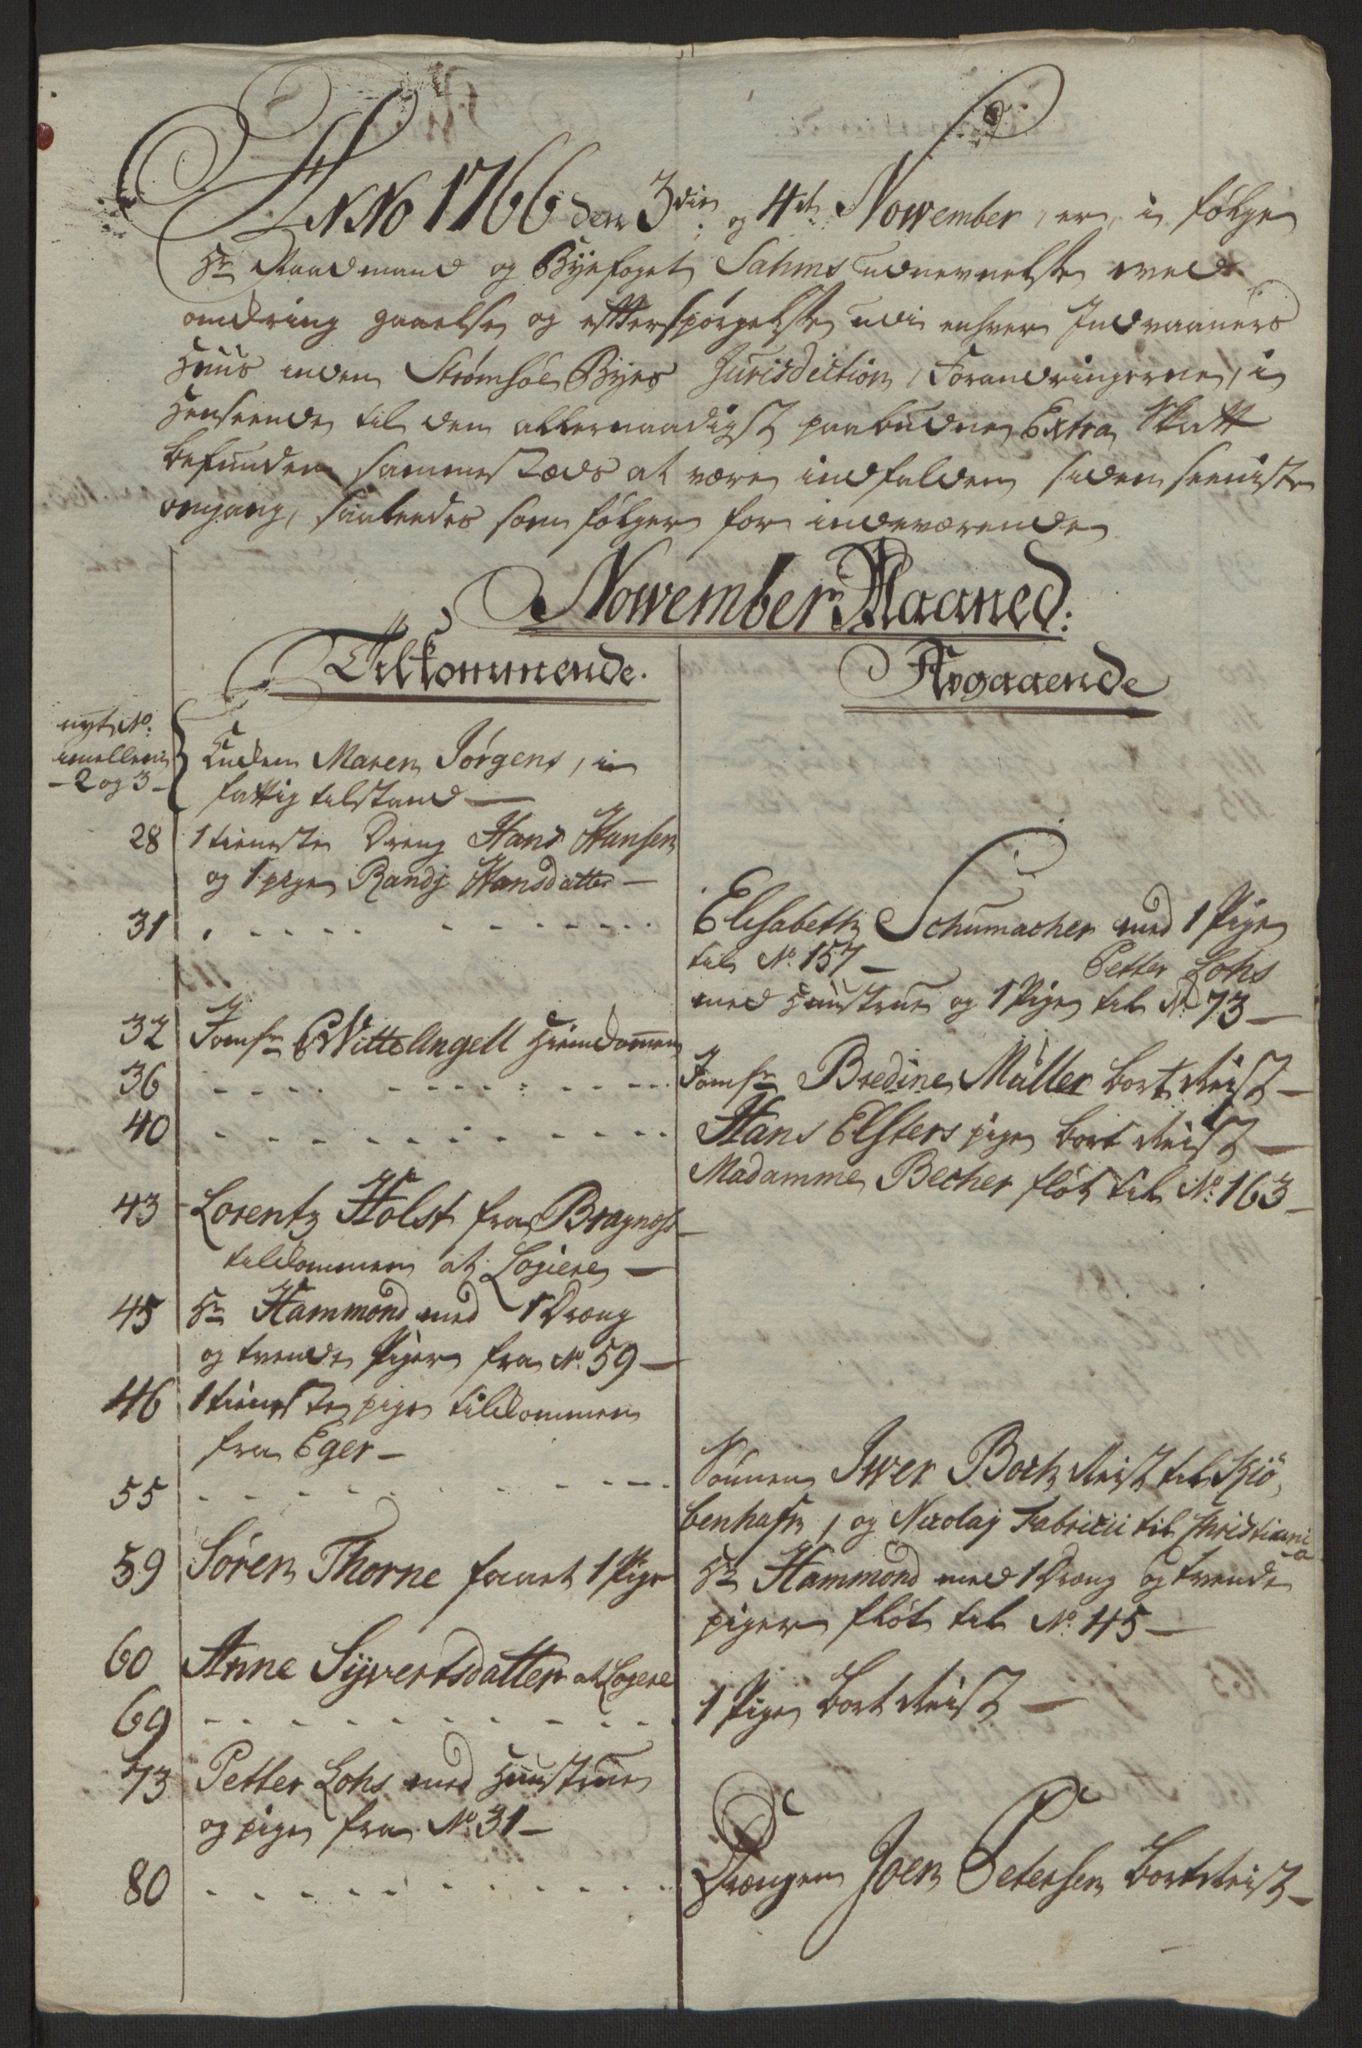 ANNO 1766 den 3die og 4de November, er, i følge
Hr Raadmand og Byefoget Sahms udnevnelse med
omdring gaaelse og efterspørgelse udi enhver Indvaaners
Huus inden Strømsøe Byes Jurisdiction, Forandringerne, i
Henseende til den allernaadigst paabudne Extra Skatt
befunden sammestæds at være indfalden siden seeniste
omgang, saaledes som følger for indeværende
Nowember Maaned:
Tilkommende.
Afgaaende
nyt No:
imellem
- 2 og 3 -
Enken Maren Jørgens, i
fattig tilstand —
28 1 tieneste Dreng Hans Hansen
og 1 pige Randj Hansdatter —
31
Elisabeth Schumacher med 1 Pige
til No. 157 — Petter Lohs
med Hustrue og 1 Pige til No 73 —
32 Jomfr Witte Angell Hiemkommen
36
Jomfr Bredine Müller bort Reist —
40
Hans Elsters pige bort Reist —
Madamme Becher fløt til No. 163 —
43 Lorentz Holst fra Bragnes
tilkommen at Logiere —
45 Hr Hammond med 1 Dræng
og tvende Piger fra No. 59 —
46 1 tieneste pige tilkommen
fra Eger —
55
Sønnen Iwer Boch Reist til Kiö-
benhafn, og Nicolaj Fabricii til Christiani-
a
59 Søren Thorne faaet 1 Pige
Hr Hammond med 1 Dræng og tvende
piger fløt til No. 45 —
60 Anne Syvertsdatter at Logere
69
1 Pige bort Reist —
73 Petter Lohs med Huustrue
og pige fra No. 31 —
80
Drængen Joen Petersen bort Reist —